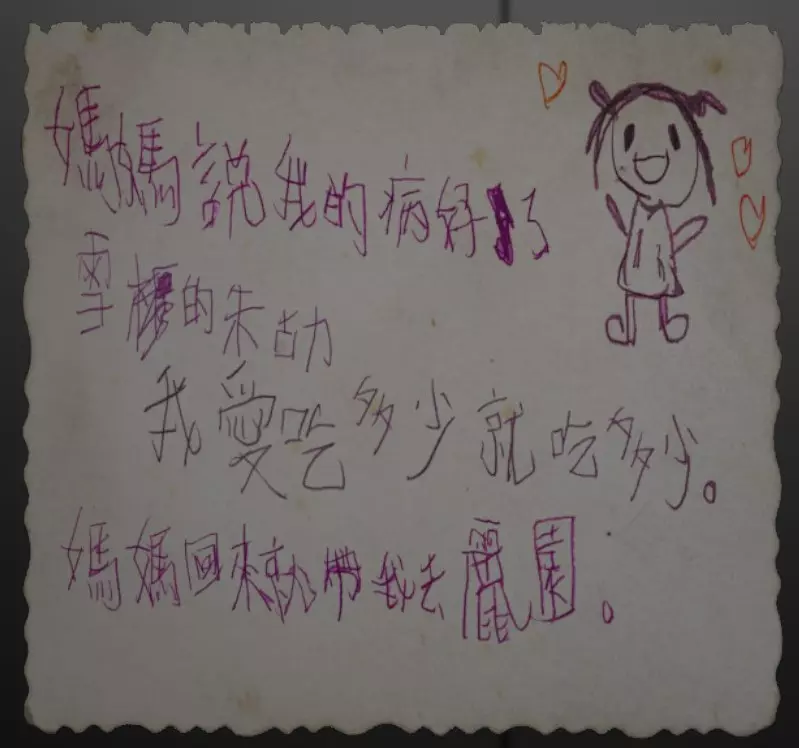 媽媽說我的病好了
雪糕的朱古力
我愛吃多少就吃多少。
媽媽回來就帶我去麗園。